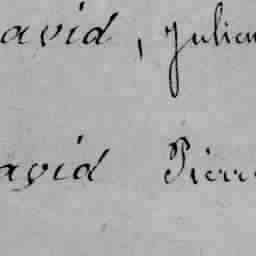 avid, Julien
avid Pierr